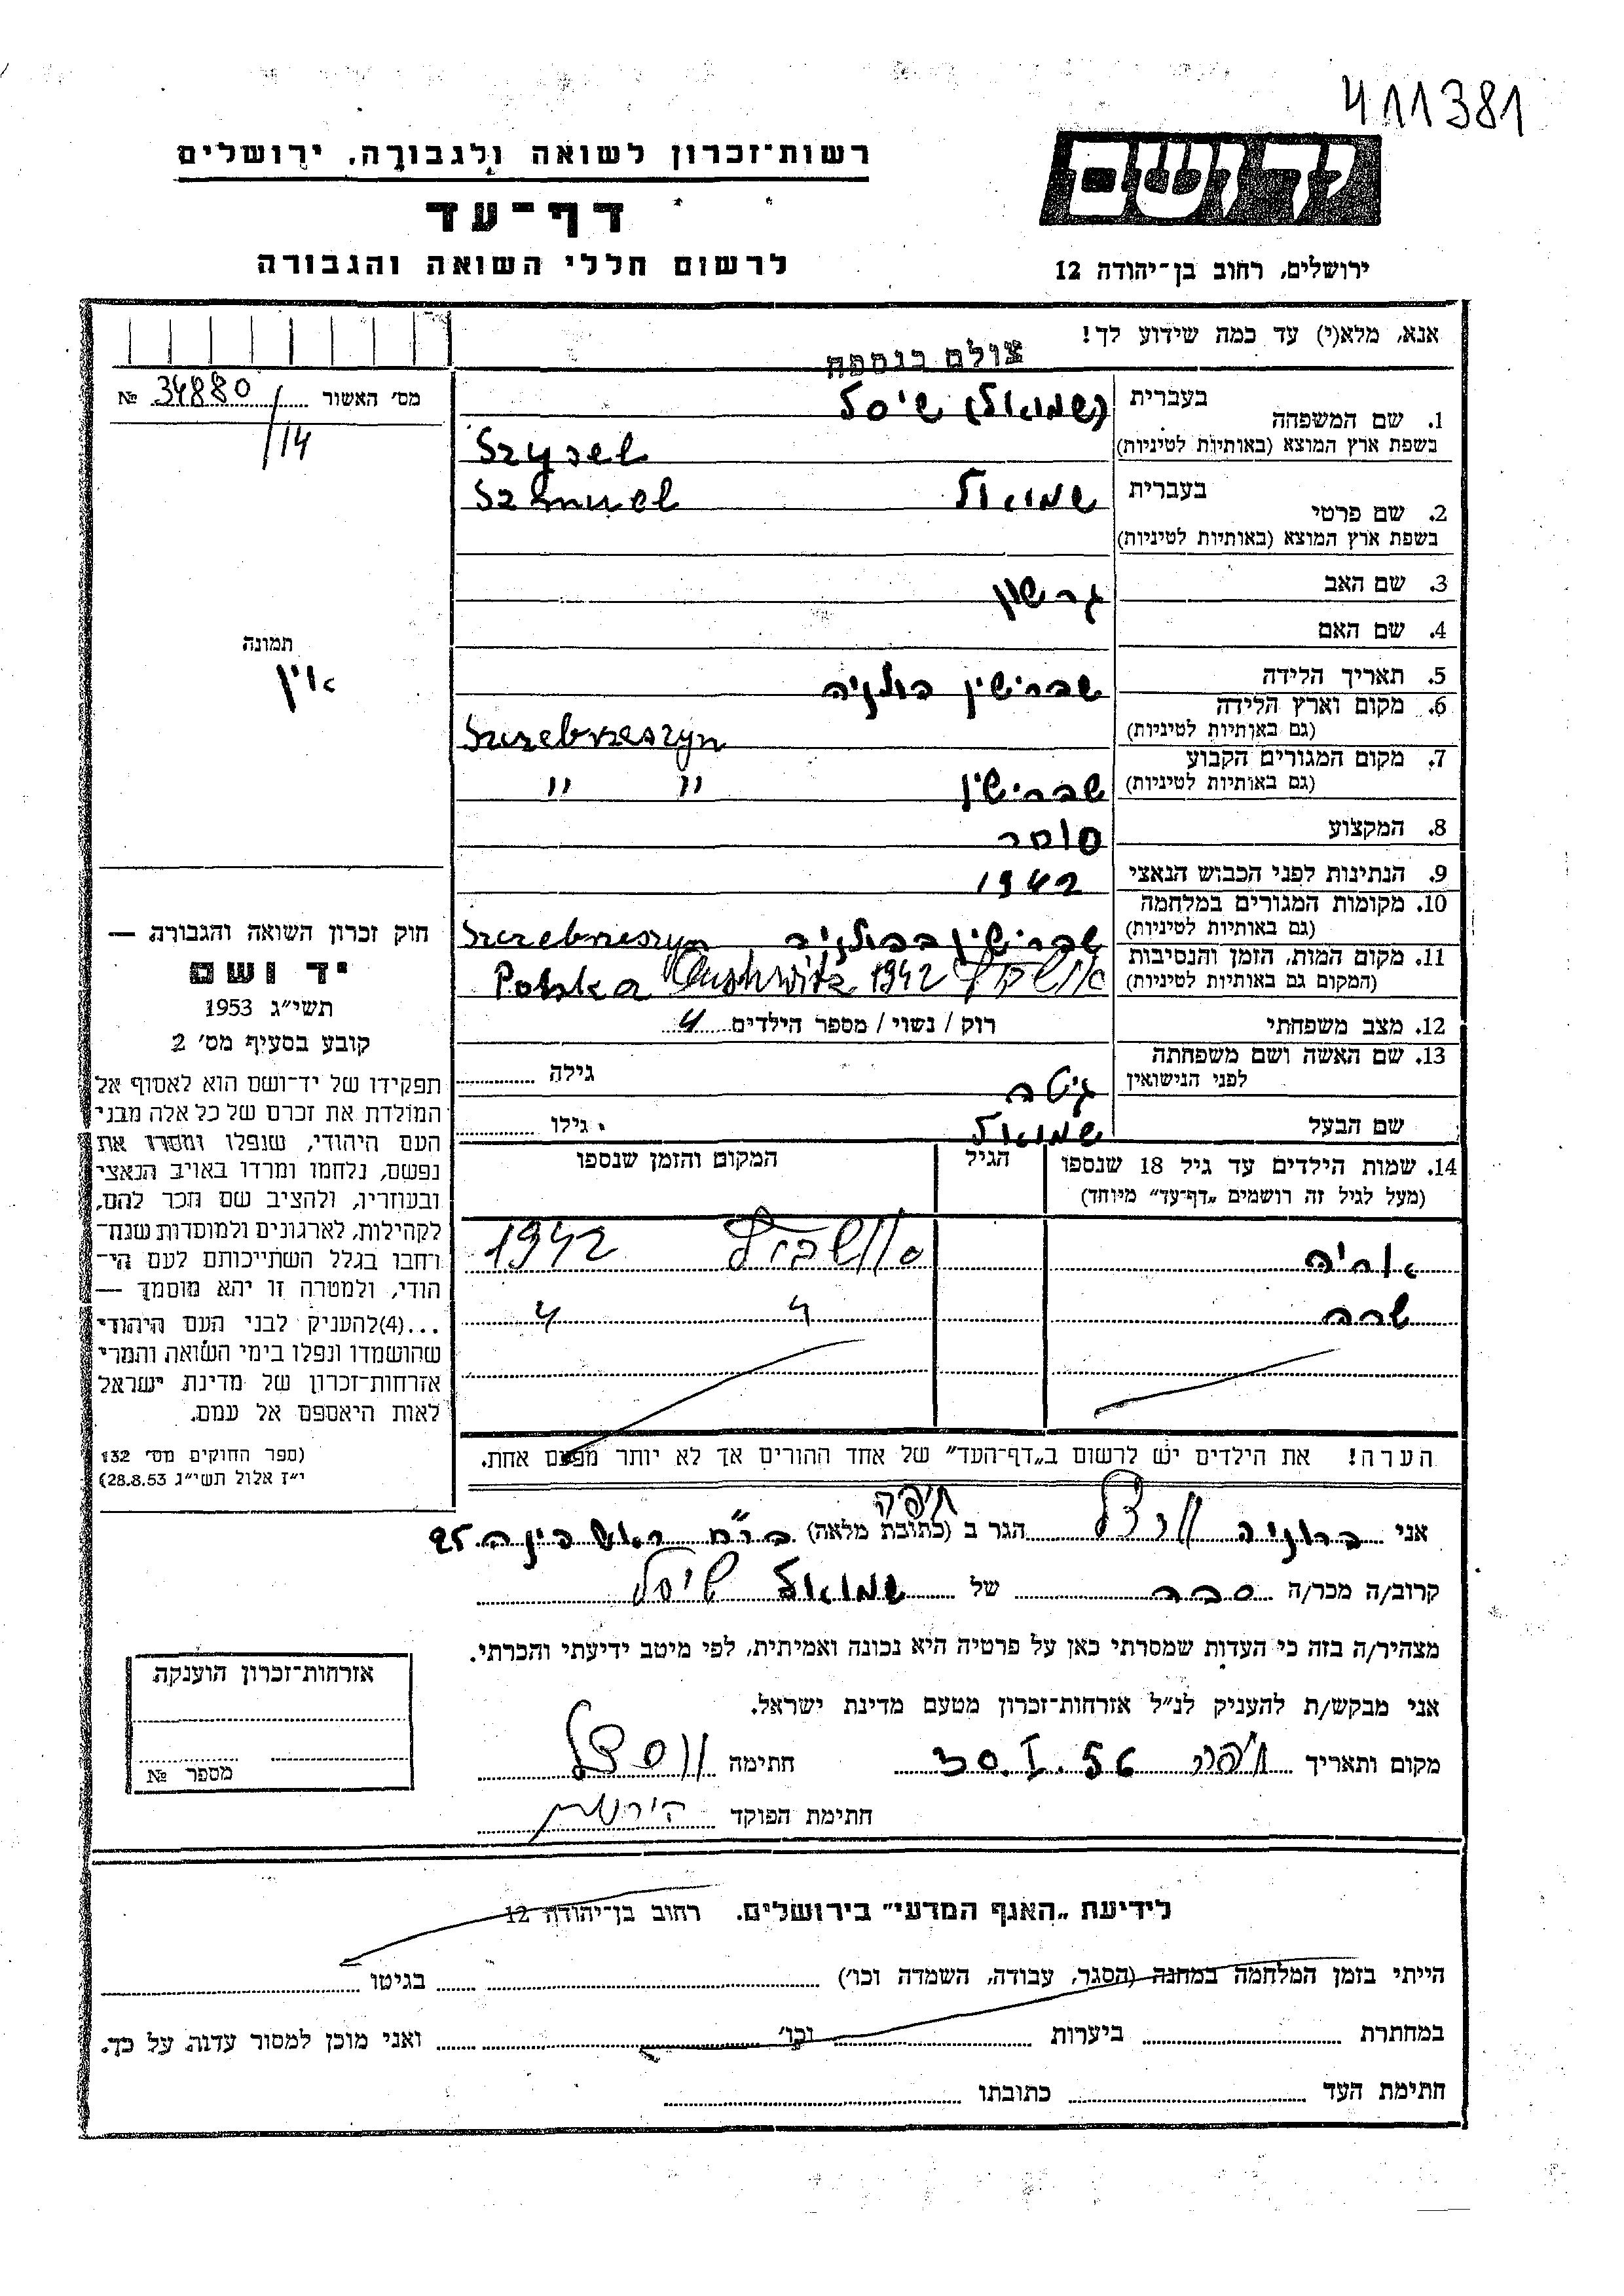 411381
רשות־זכרון לשואה ולגבורה, ירושלים
יד ושם
דף־עד
לרשום חללי השואה והגבורה
ירושלים, רחוב בן־יהודה 12
אנא, מלא(י) עד כמה שידוע לך!
צולם בנוספח
מס׳ האשור № 34880
/14
1. שם המשפחה בעברית (שמואל) שיסל
בשפת ארץ המוצא (באותיות לטיניות) Szysel
2. שם פרטי בעברית שמואל Szmuel
בשפת ארץ המוצא (באותיות לטיניות)
3. שם האב גרשון
4. שם האם
תמונה
אין
5. תאריך הלידה שברישין פולניה
6. מקום וארץ הלידה
(גם באותיות לטיניות) Szczebrzeszyn
7. מקום המגורים הקבוע
(גם באותיות לטיניות) שברישין " "
8. המקצוע סוחר
9. הנתינות לפני הכבוש הנאצי 1942
10. מקומות המגורים במלחמה
(גם באותיות לטיניות) שברישין בפולניה Szczebrzeszyn
11. מקום המות, הזמן והנסיבות
(המקום גם באותיות לטיניות) 1942 Aushwitz Polska
12. מצב משפחתי רוק / נשוי / מספר הילדים 4
13. שם האשה ושם משפחתה
לפני הנישואין גיטה גילה
שם הבעל שמואל גילו
14. שמות הילדים עד גיל 18 שנספו הגיל המקום והזמן שנספו
(מעל לגיל זה רושמים „דף־עד״ מיוחד)
אריה 1942
שרה 4 4
הערה! את הילדים יש לרשום ב„דף־העד״ של אחד ההורים אך לא יותר מפעם אחת.
חוק זכרון השואה והגבורה —
יד ושם
תשי״ג 1953
קובע בסעיף מס׳ 2
תפקידו של יד־ושם הוא לאסוף אל
המולדת את זכרם של כל אלה מבני
העם היהודי, שנפלו ומסרו את
נפשם, נלחמו ומרדו באויב הנאצי
ובעוזריו, ולהציב שם וזכר להם,
לקהילות, לארגונים ולמוסדות שנח־
רחבו בגלל השתייכותם לעם הי־
הודי, ולמטרה זו יהא מוסמך —
...(4)להעניק לבני העם היהודי
שהושמדו ונפלו בימי השואה והמרי
אזרחות־זכרון של מדינת ישראל
לאות היאספם אל עמם.
(ספר החוקים מס׳ 132
י״ז אלול תשי״ג 28.8.53)
חיפה
אני ברוניה הגר ב (כתובת מלאה) ברח׳ ראש פינה 25
קרוב/ה מכר/ה של שמואל שיסל
מצהיר/ה בזה כי העדות שמסרתי כאן על פרטיה היא נכונה ואמיתית, לפי מיטב ידיעתי והכרתי.
אני מבקש/ת להעניק לנ״ל אזרחות־זכרון מטעם מדינת ישראל.
מקום ותאריך חיפה 30.I.56 חתימה
חתימת הפוקד
אזרחות־זכרון הוענקה
מספר №
לידיעת „האגף המדעי״ בירושלים. רחוב בן־יהודה 12
הייתי בזמן המלחמה במחנה (הסגר, עבודה, השמדה וכו׳) בגיטו
במחתרת ביערות וכו׳ ואני מוכן למסור עדות על כך.
חתימת העד כתובתו